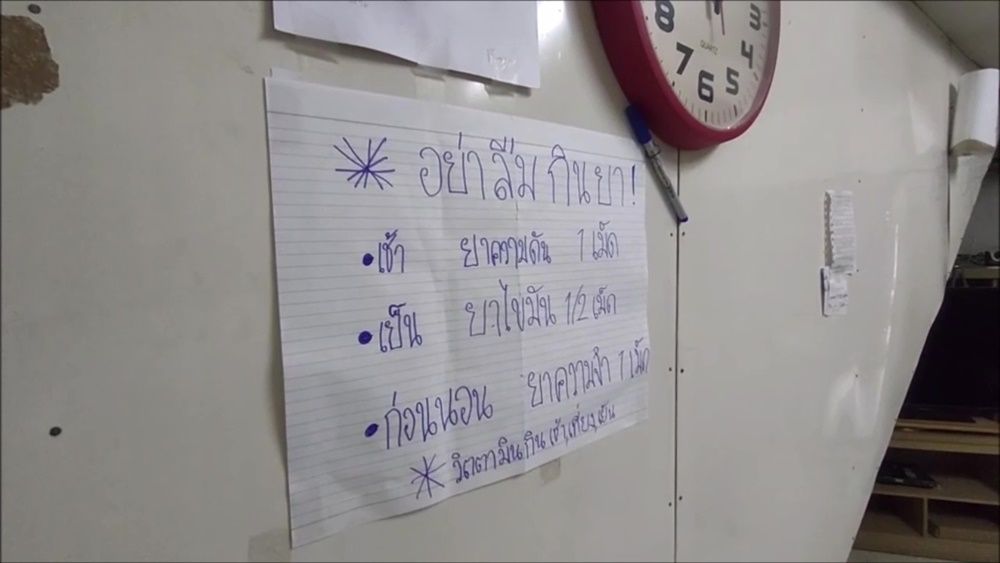 8
7
6
5
4
QUARTZ
* อย่าลืม กินยา!
• เช้า ยาความดัน 1 เม็ด
• เย็น ยาไขมัน 1/2 เม็ด
• ก่อนนอน ยาความจำ 1 เม็ด
* วิตตามินกิน เช้า,เที่ยง,เย็น